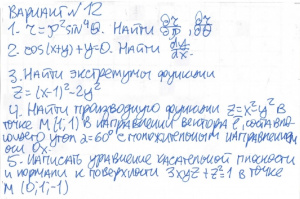 Вариант N 12
1. τ = ρ² sin⁴θ. Найти ∂τ/∂ρ, ∂τ/∂θ
2. cos(x+y)+y=0. Найти dy/dx.
3. Найти экстремумы функции
Z=(x-1)²-2y²
4. Найти производную функции Z=x²y² в
точке M(1;1) в направлении вектора ē, составля-
ющего угол α=60° с положительным направлением
оси Ox.
5. Написать уравнение касательной плоскости
и нормали к поверхности 3xyz+z²=1 в точке
M(0;1;-1)